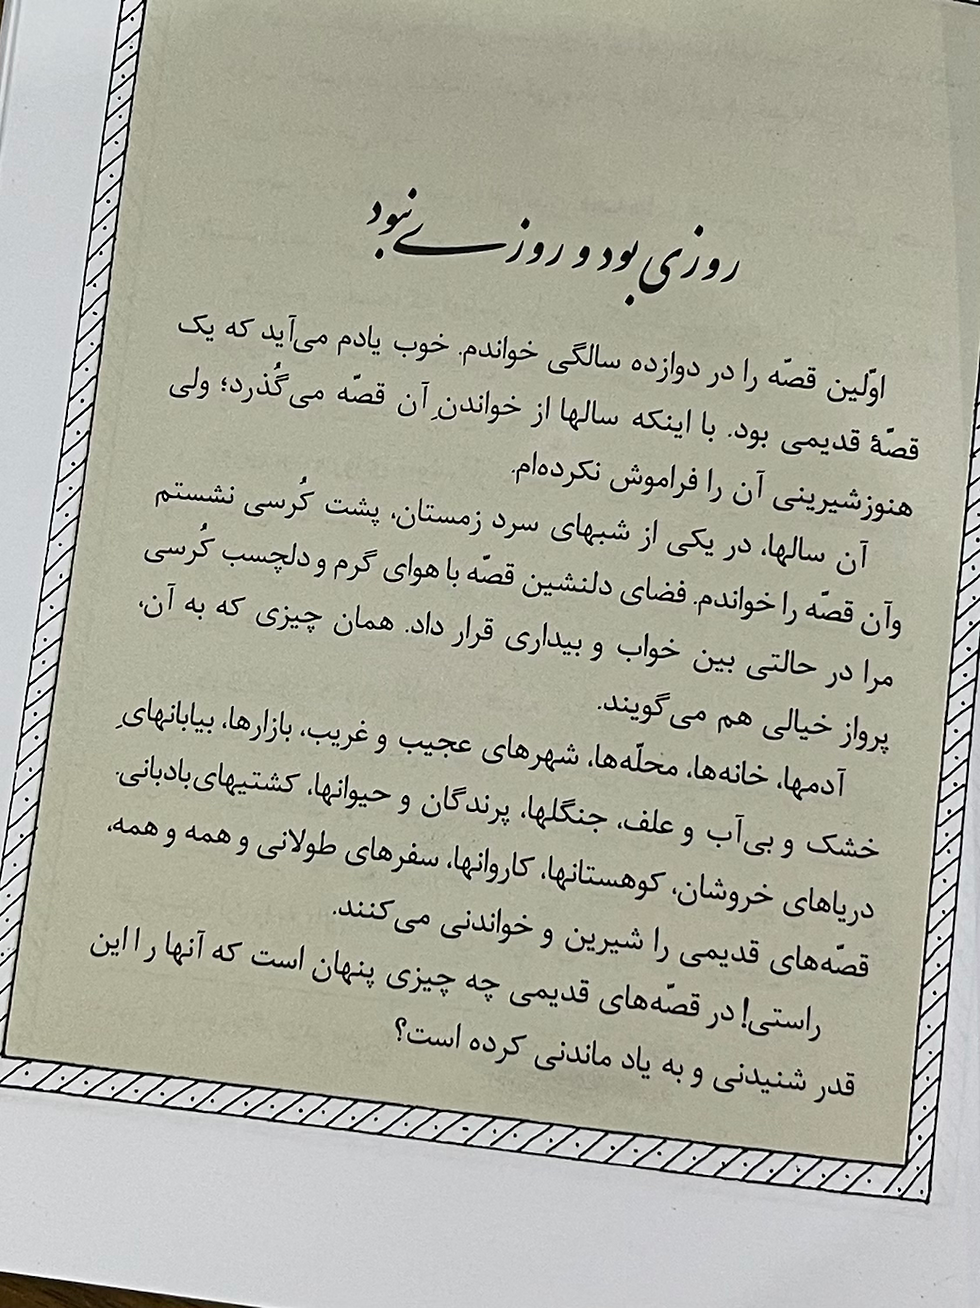 روزی بود و روزی نبود
اوّلین قصّه را در دوازده سالگی خواندم. خوب یادم می‌آید که یک
قصّهٔ قدیمی بود. با اینکه سالها از خواندنِ آن قصّه می‌گُذرد؛ ولی
هنوزشیرینی آن را فراموش نکرده‌ام.
آن سالها، در یکی از شبهای سرد زمستان، پشت کُرسی نشستم
وآن قصّه را خواندم. فضای دلنشین قصّه با هوای گرم و دلچسب کُرسی
مرا در حالتی بین خواب و بیداری قرار داد. همان چیزی که به آن،
پرواز خیالی هم می‌گویند.
آدمها، خانه‌ها، محلّه‌ها، شهرهای عجیب و غریب، بازارها، بیابانهایِ
خشک و بی‌آب و علف، جنگلها، پرندگان و حیوانها، کشتیهای‌بادبانی.
دریاهای خروشان، کوهستانها، کاروانها، سفرهای طولانی و همه و همه،
قصّه‌های قدیمی را شیرین و خواندنی می‌کنند.
راستی! در قصّه‌های قدیمی چه چیزی پنهان است که آنها را این
قدر شنیدنی و به یاد ماندنی کرده است؟